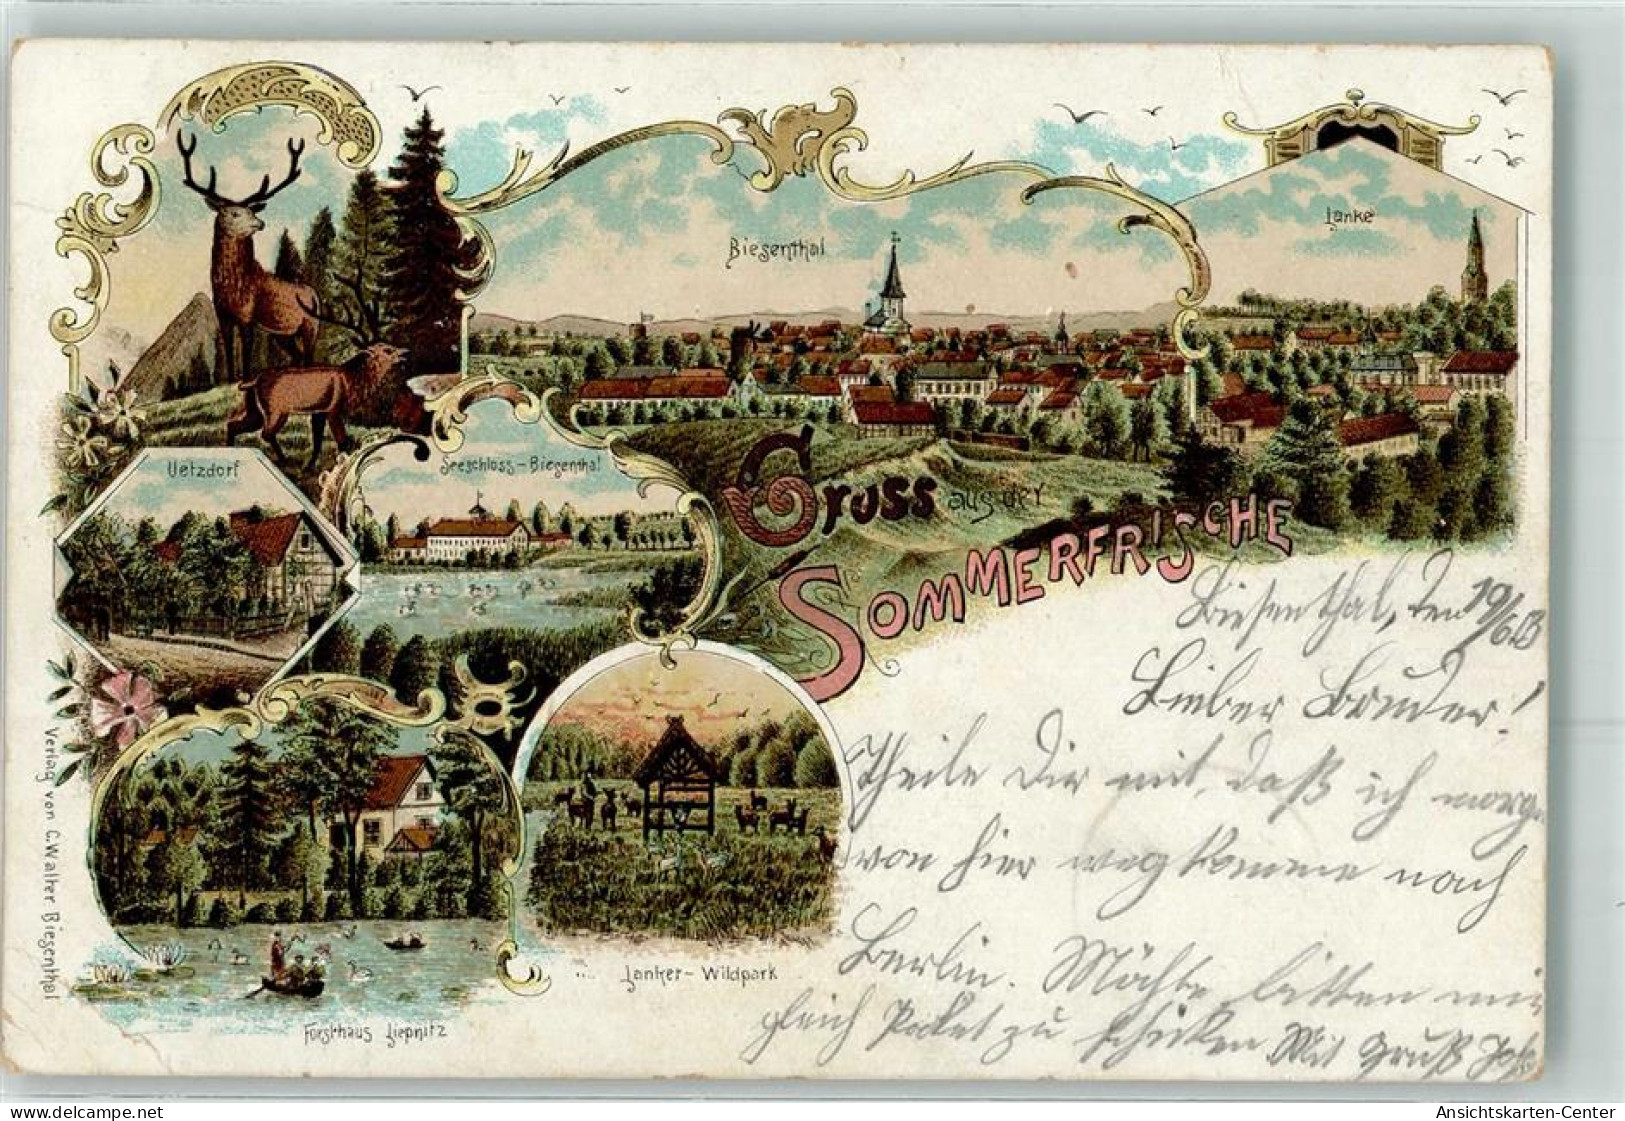 Biesenthal
Lanke
Uetzdorf
Seeschloss-Biesenthal
Gruss aus der
SOMMERFRISCHE
Biesenthal, den 19/6.
Lieber Bruder!
Theile Dir mit, daß ich morgen
von hier weg komme nach
Berlin. Möchte bitten mir
gleich Packet zu schicken. Mit Gruß
Lanker-Wildpark
Forsthaus Liepnitz
Verlag von C. Walter Biesenthal
delcampe.net
Ansichtskarten-Center